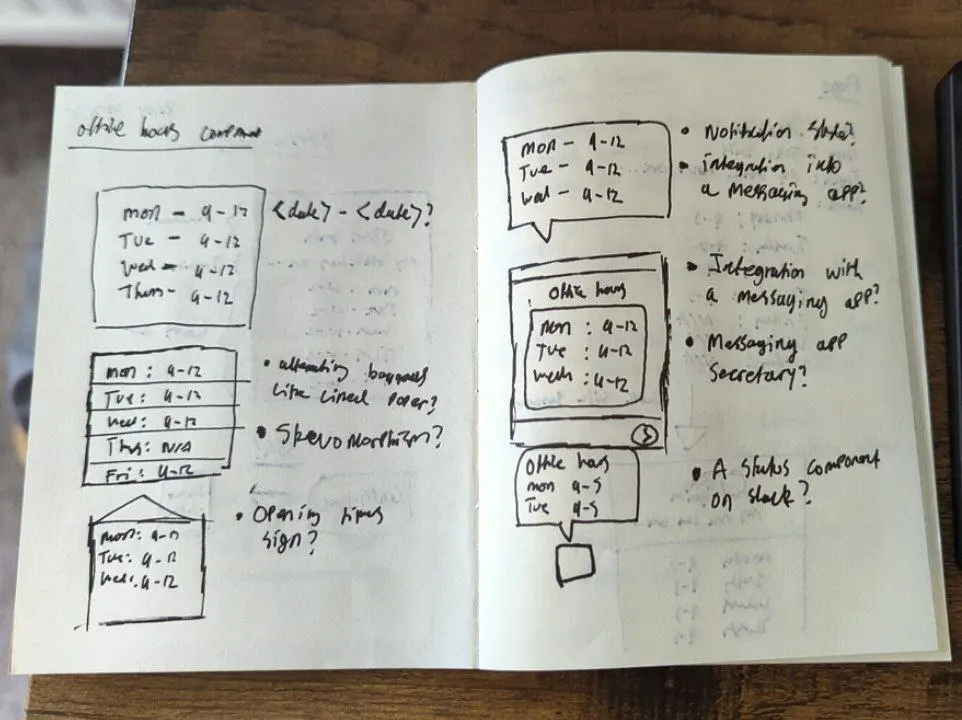 office hours component
Mon - 9-12
Tue - 9-12
Wed - 9-12
Thurs- 9-12
<date> - <date>?
Mon : 9-12
Tue : 9-12
Wed : 9-12
Thu : N/A
Fri : 9-12
• alternating
like lined paper?
• Skeuomorphism?
Mon: 9-12
Tue: 9-12
Wed: 9-12
• Opening times
sign?
Mon - 9-12
Tue - 9-12
Wed - 9-12
• Notification state?
• integration into
a messaging app?
Office hours
Mon : 9-12
Tue : 9-12
Weds : 9-12
• Integration with
a messaging app?
• Messaging app
secretary?
Office hours
Mon 9-5
Tue 9-5
• A status component
on slack?